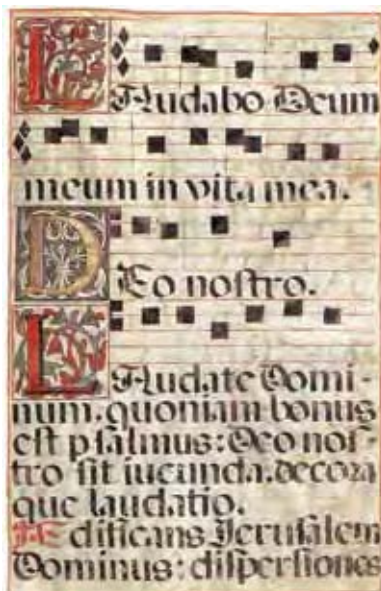 LAudabo Deum
meum in vita mea.
DEo nostro.
LAudate Domi-
num. quoniam bonus
est psalmus: Deo nos-
tro sit iucunda. decora
que laudatio.
Ædificans Jerusalem
Dominus: dispersiones